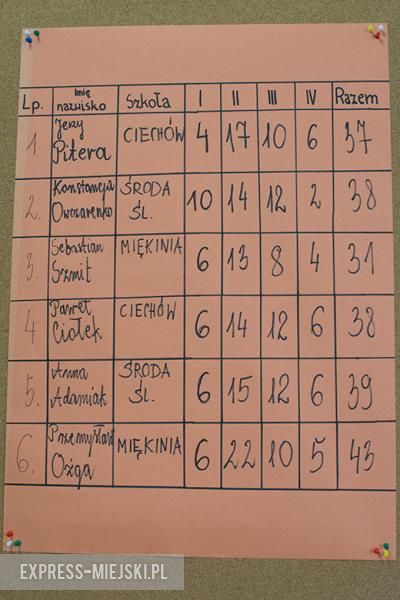 Lp. Imię nazwisko Szkoła I II III IV Razem
1. Jerzy Pitera CIECHÓW 4 17 10 6 37
2. Konstancja Owczarenko ŚRODA ŚL. 10 14 12 2 38
3. Sebastian Szmit MIĘKINIA 6 13 8 4 31
4 Paweł Ciołek CIECHÓW 6 14 12 6 38
5. Anna Adamiak ŚRODA ŚL. 6 15 12 6 39
6. Przemysław Ożga MIĘKINIA 6 22 10 5 43
EXPRESS-MIEJSKI.PL